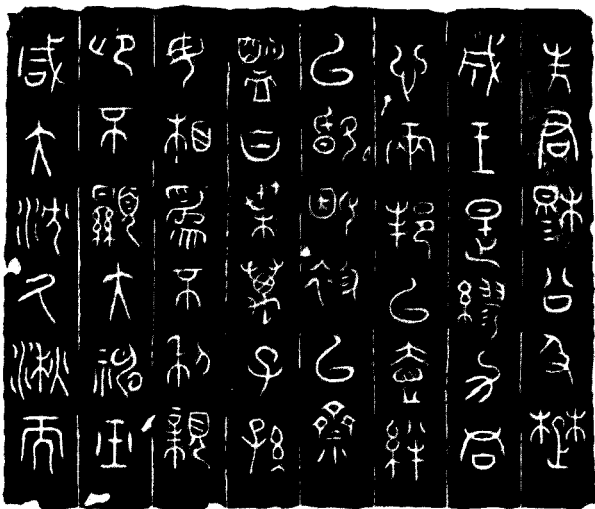 先君穆公及楚
成王是繆力同
心兩邦以壹絆
以婚姻袗以齊
盟曰枼萬子孫
毋相爲不利親
卬不顯大神巫
咸大沈久湫而